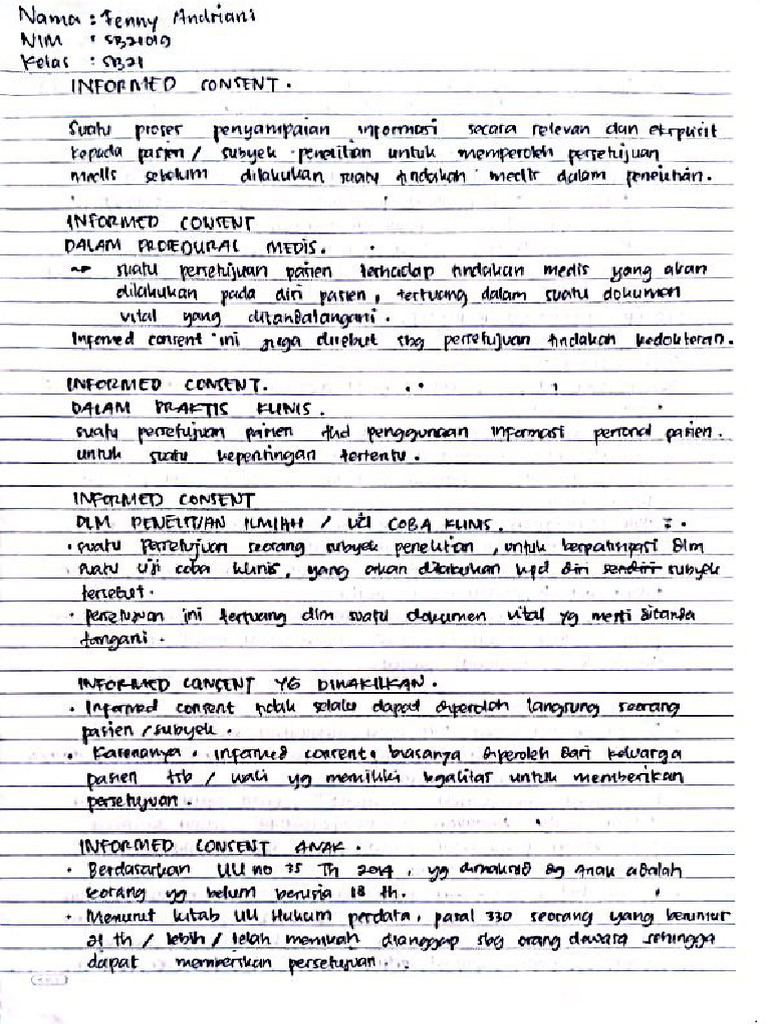 Nama : Fenny Andriani
NIM : SB21019
Kelas : SB21
INFORMED CONSENT.
Suatu proses penyampaian informasi secara relevan dan eksplisit
kepada pasien / subyek penelitian untuk memperoleh persetujuan
medis sebelum dilakukan suatu tindakan medis dalam penelitian.
INFORMED CONSENT
DALAM PROEDURAL MEDIS.
→ suatu persetujuan pasien terhadap tindakan medis yang akan
dilakukan pada diri pasien, tertuang dalam suatu dokumen
vital yang ditandatangani.
Informed consent ini juga disebut sbg persetujuan tindakan kedokteran.
INFORMED CONSENT.
DALAM PRAKTIS KLINIS.
suatu persetujuan pasien thd penggunaan informasi personal pasien.
untuk suatu kepentingan tertentu.
INFORMED CONSENT
DLM PENELITIAN ILMIAH / UJI COBA KLINIS.
• suatu persetujuan seorang subyek penelitian, untuk berpatisipasi dlm
suatu uji coba klinis, yang akan dilakukan kpd diri sendiri subyek
tersebut.
• persetujuan ini tertuang dlm suatu dokumen vital yg mesti ditanda
tangani.
INFORMED CONSENT YG DIWAKILKAN.
• Informed consent tidak selalu dapat diperoleh langsung seorang
pasien / subyek.
• Karenanya, informed consent, biasanya diperoleh dari keluarga
pasien tsb / wali yg memiliki legalitas untuk memberikan
persetujuan.
INFORMED CONSENT ANAK.
• Berdasarkan UU no 35 Th 2014, yg dimaksud dg Anak adalah
seorang yg belum berusia 18 th.
• Menurut kitab UU Hukum perdata, pasal 330 seorang yang berumur
21 th / lebih / telah menikah dianggap sbg orang dewasa sehingga
dapat memberikan persetujuan.